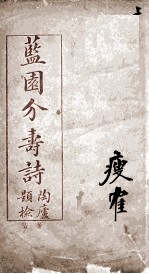 上
瘦雀
藍園分壽詩
陶廬
題檢